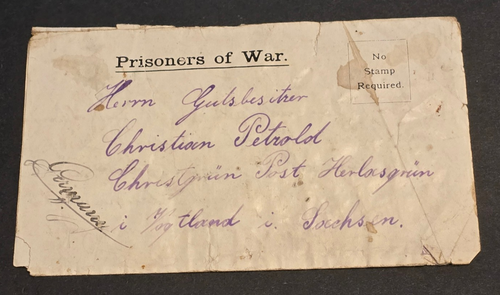 Prisoners of War.
No
Stamp
Required.
Herrn Gutsbesitzer
Christian Petzold
Christgrün Post Herlasgrün
i Vogtland i. Sachsen.
Germany